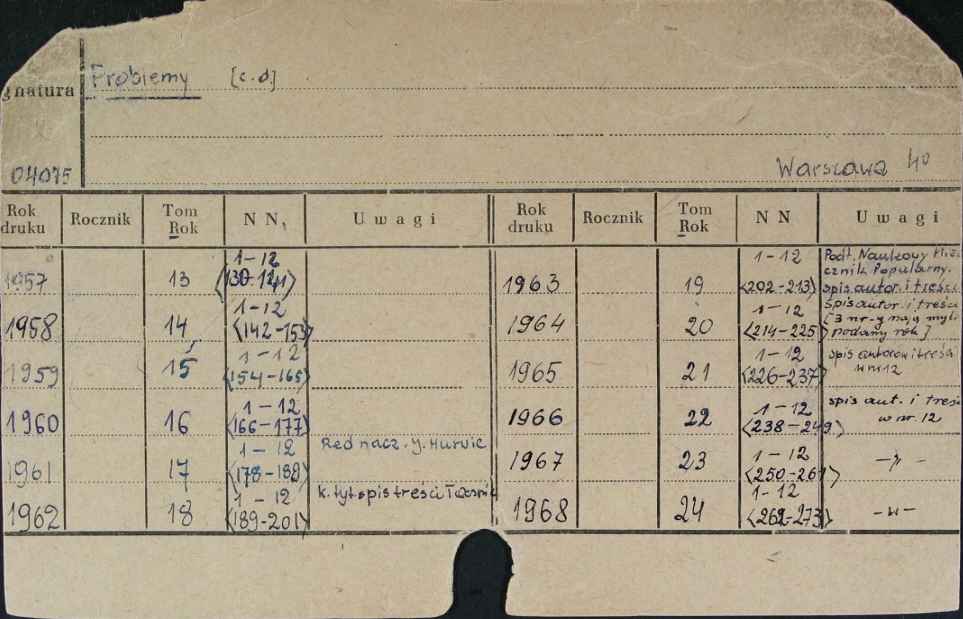 Problemy [c.d.]
gnatura
04075
Warszawa 4o
Rok druku Rocznik Tom Rok N N, U w a g i Rok druku Rocznik Tom Rok N N U w a g i
1957 13 1-12 <130-141>
1958 14 1-12 <142-153>
1959 15 1-12 <154-165>
1960 16 1-12 <166-177>
1961 17 1-12 <178-188> Red nacz. J. Hurwic
1962 18 1-12 <189-201> k. tyt. spis treści
1963 19 1-12 <202-213> Podt. Naukowy Mies
cznik Popularny.
spis autor. i treści
1964 20 1-12 <214-225> Spis autor. i treści
[3 nr-y mają myl
podany rok]
1965 21 1-12 <226-237> spis autorów i treści
w nr 12
1966 22 1-12 <238-249.> spis aut. i treśc
w nr. 12
1967 23 1-12 <250-261> -"-
1968 24 1-12 <262-273> -"-